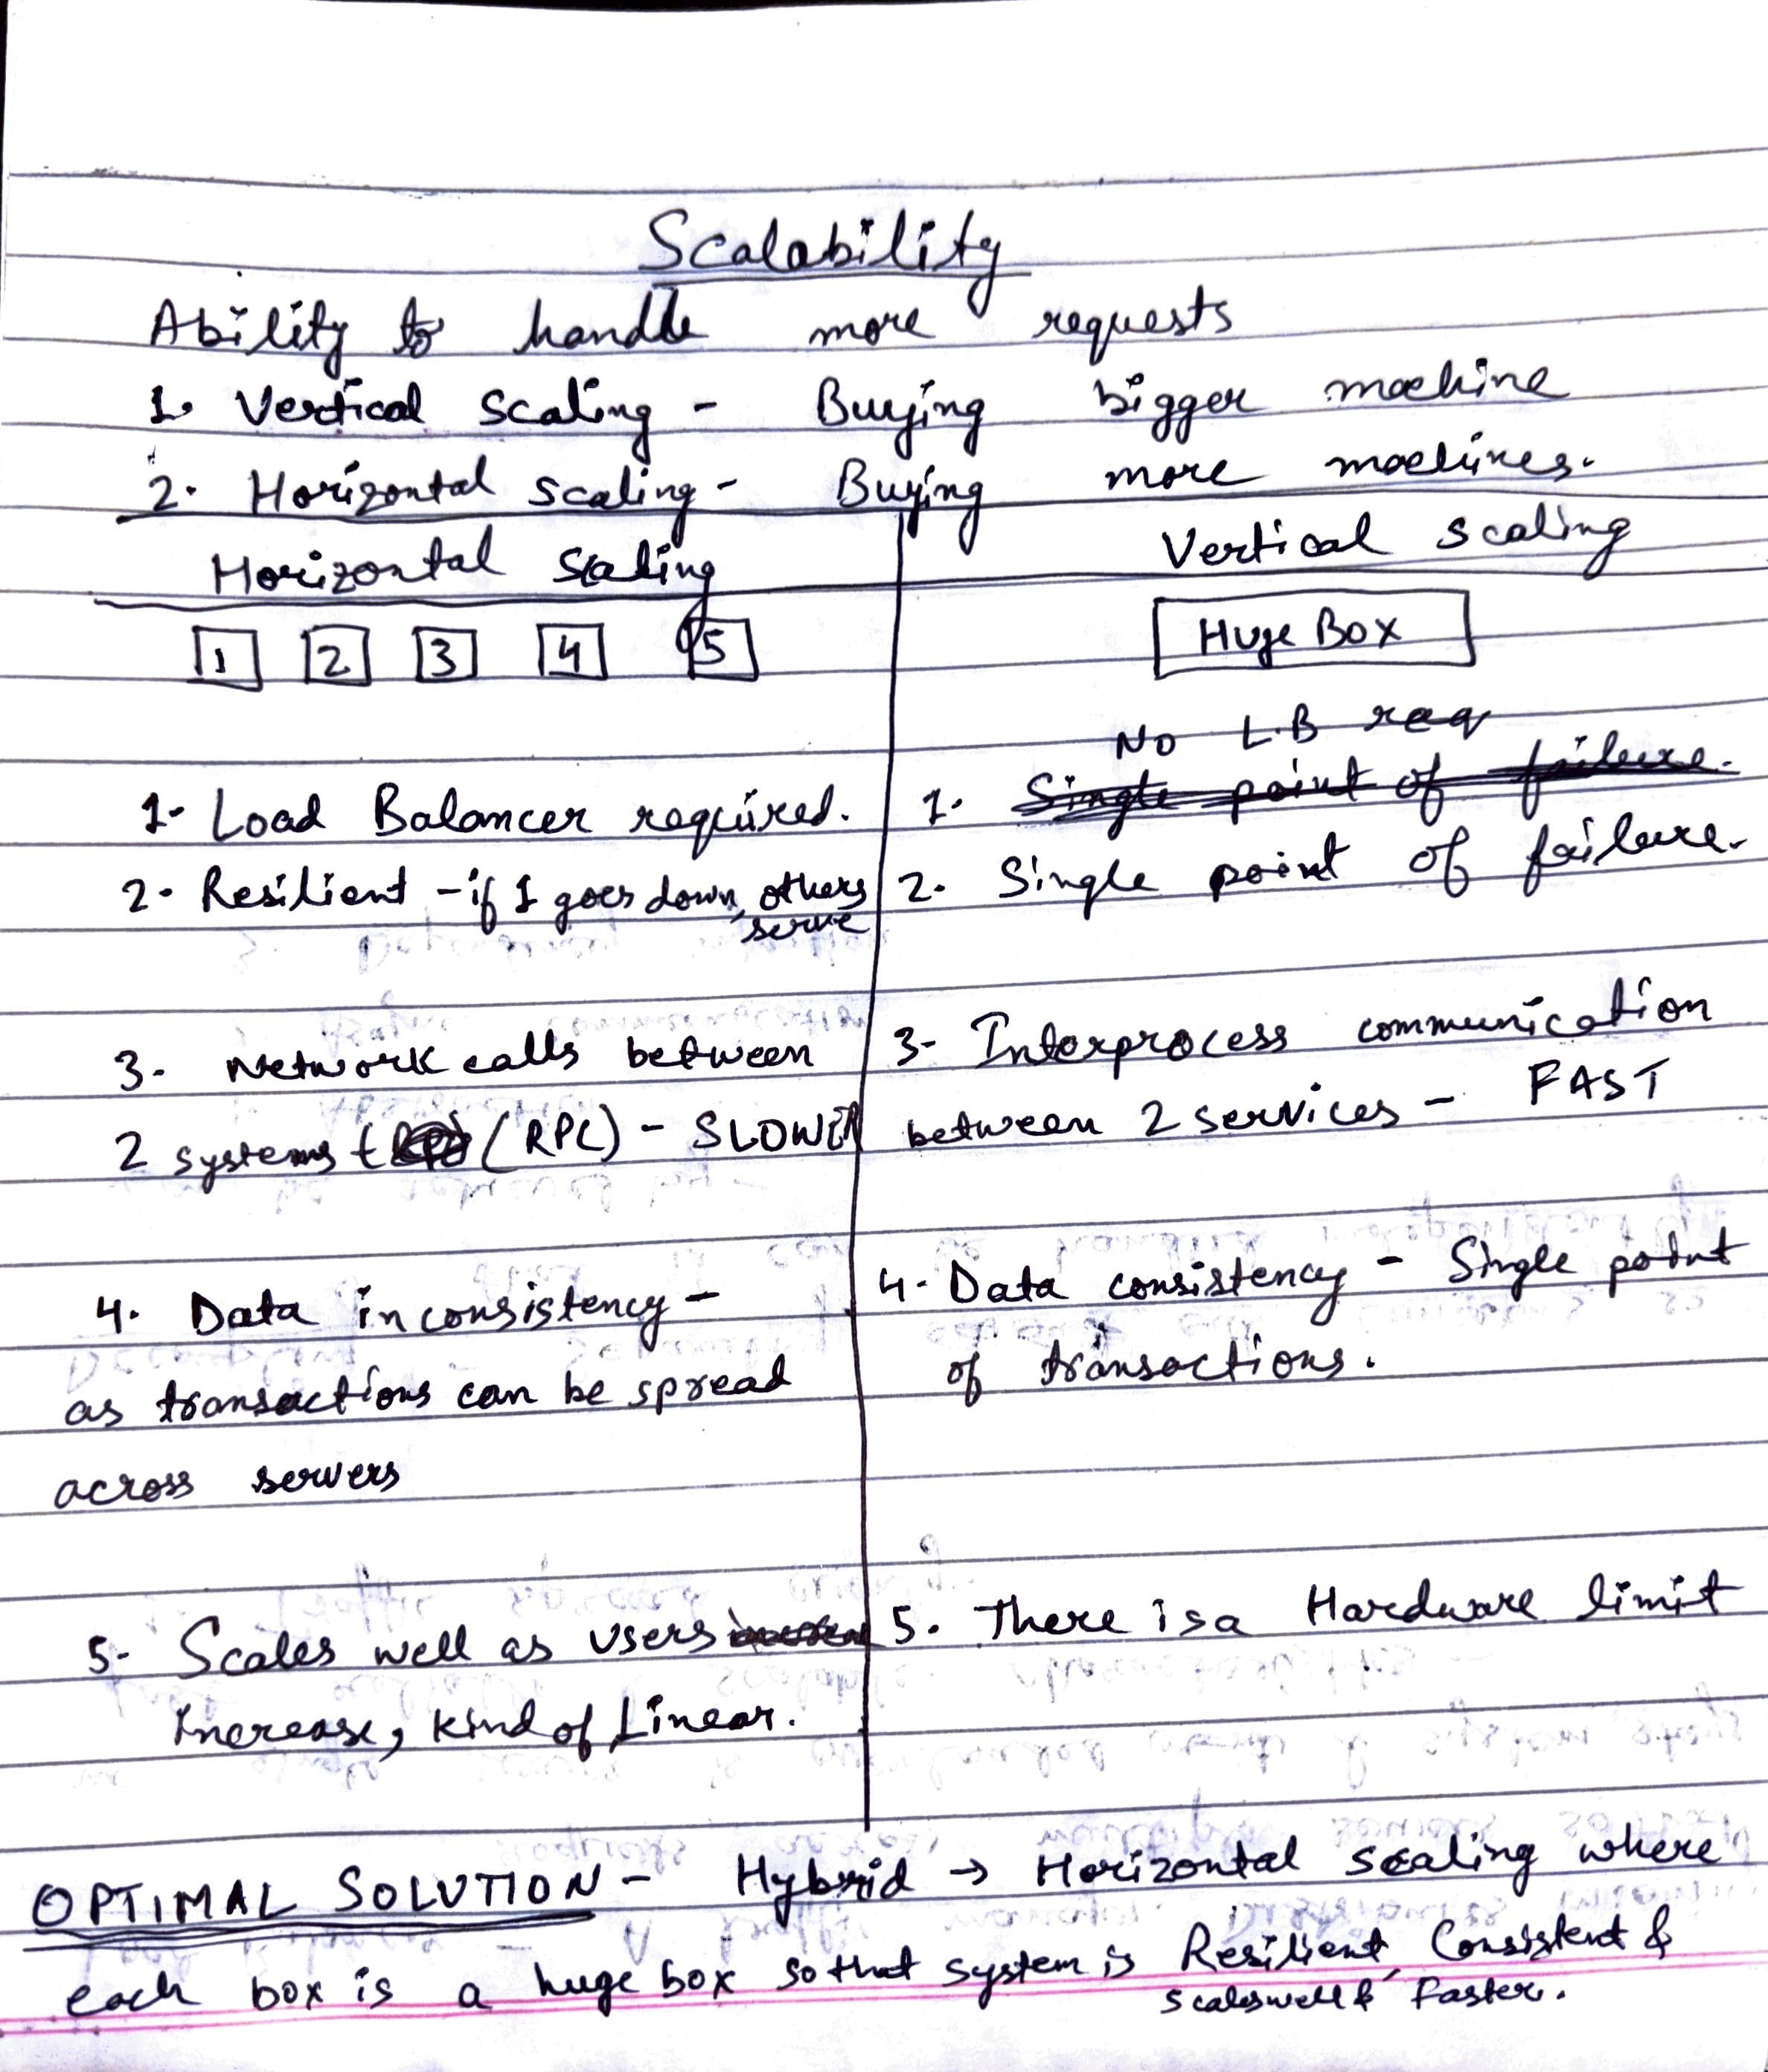 Scalability
Ability to handle more requests
1. Vertical scaling - Buying bigger machine
2. Horizontal scaling - Buying more machines.
Horizontal Scaling
1 2 3 4 5
1- Load Balancer required.
2- Resilient - if 1 goes down, others
serve
3- Network calls between
2 systems (RPC) - SLOW
4. Data inconsistency -
as transactions can be spread
across servers
5- Scales well as users
increase, kind of Linear.
Vertical scaling
Huge Box
No L.B req
1. Single point of failure.
2. Single point of failure.
3- Interprocess communication
between 2 services - FAST
4- Data consistency - Single point
of transactions.
5. There is a Hardware limit
OPTIMAL SOLUTION - Hybrid → Horizontal scaling where
each box is a huge box so that system is Resilient, Consistent &
scales well & Faster.